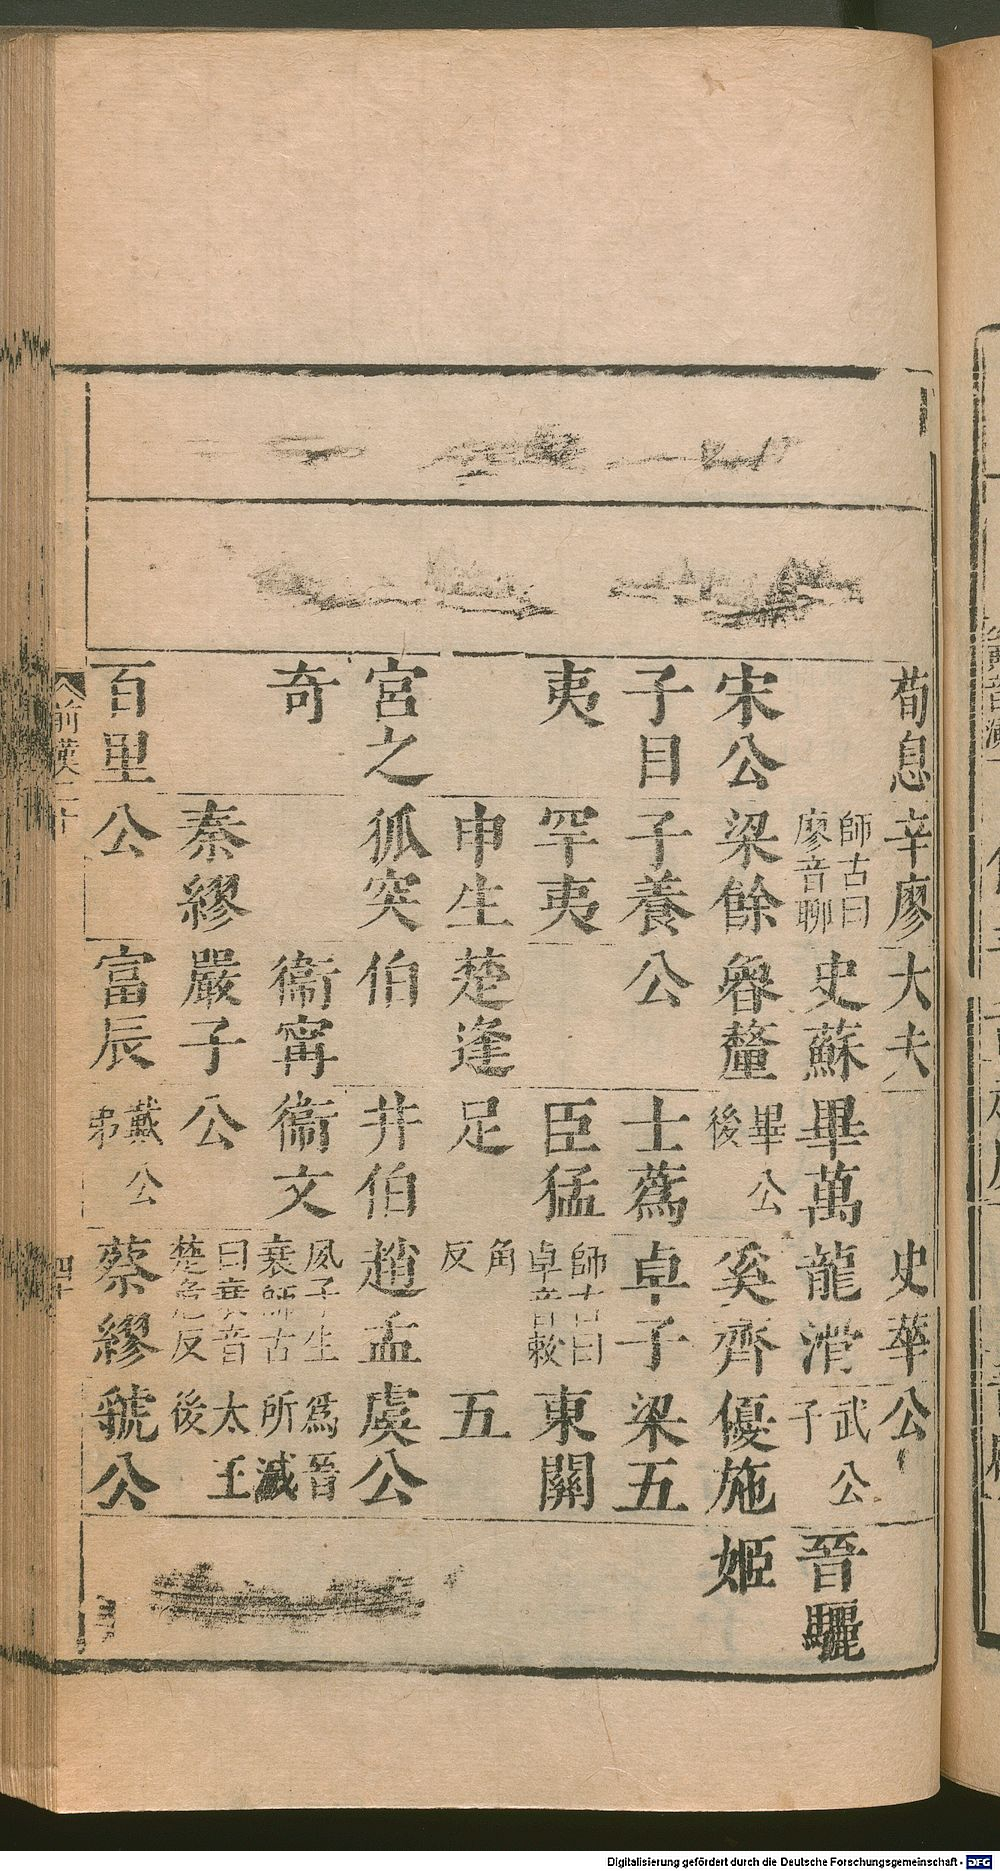 荀息辛廖大夫史華公
師古曰廖音聊史蘇畢萬龍滑武公子晉驪
宋公梁餘魯釐畢公後奚齊優施姬
子目子養公士蔿卓子梁五
夷罕夷臣猛師古曰卓音敕東關
申生楚逢足角反五
宮之狐突伯井伯趙孟虞公
奇衞甯衞文夙子生衰師古曰衰音楚危反爲晉所滅太王後
秦繆嚴子公
百里公富辰戴公弟蔡繆虢公
前漢二十
四十
Digitalisierung gefördert durch die Deutsche Forschungsgemeinschaft - DFG